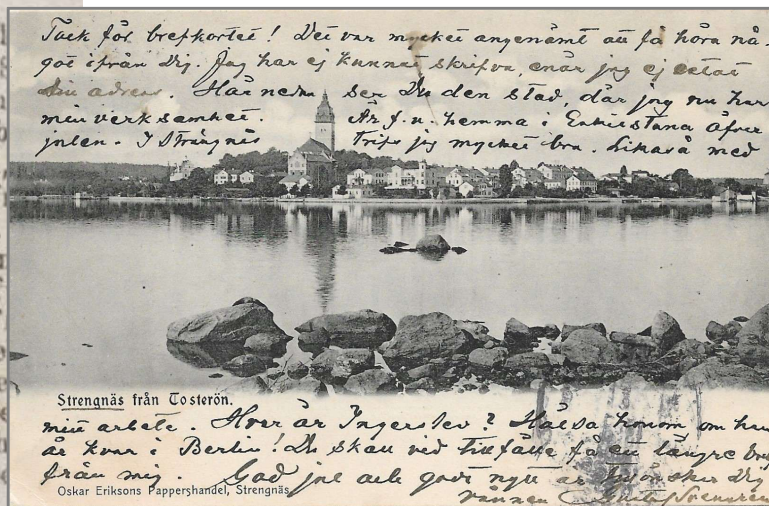 Tack för brefkortet! Det var mycket angenämt att få höra nå-
got ifrån dig. Jag har ej kunnat skrifva, enär jag ej vetat
din adress. Här nedan ser Du den stad, där jag nu har
min verksamhet. Är f.n. hemma i Eskilstuna öfver
julen. I Strängnäs trifs jag mycket bra. Likaså med
Strengnäs från Tosterön.
mitt arbete. Hvar är Ingerslev? Hälsa honom om han
är kvar i Berlin! Du skall vid tillfälle få ett längre bref
från mig. God jul och godt nytt år tillönskar Dig
Oskar Eriksons Pappershandel, Strengnäs.
vännen Gustaf